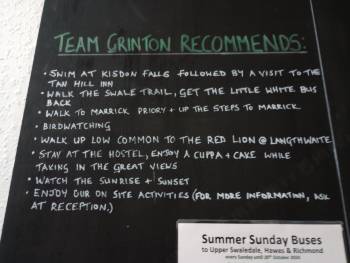 TEAM GRINTON RECOMMENDS:
• SWIM AT KISDON FALLS FOLLOWED BY A VISIT TO THE
TAN HILL INN
• WALK THE SWALE TRAIL, GET THE LITTLE WHITE BUS
BACK
• WALK TO MARRICK PRIORY + UP THE STEPS TO MARRICK
• BIRDWATCHING
• WALK UP LOW COMMON TO THE RED LION @ LANGTHWAITE
• STAY AT THE HOSTEL, ENJOY A CUPPA + CAKE WHILE
TAKING IN THE GREAT VIEWS
• WATCH THE SUNRISE + SUNSET
• ENJOY OUR ON SITE ACTIVITIES (FOR MORE INFORMATION, ASK
AT RECEPTION.)
Summer Sunday Buses
to Upper Swaledale, Hawes & Richmond
every Sunday until 20th October